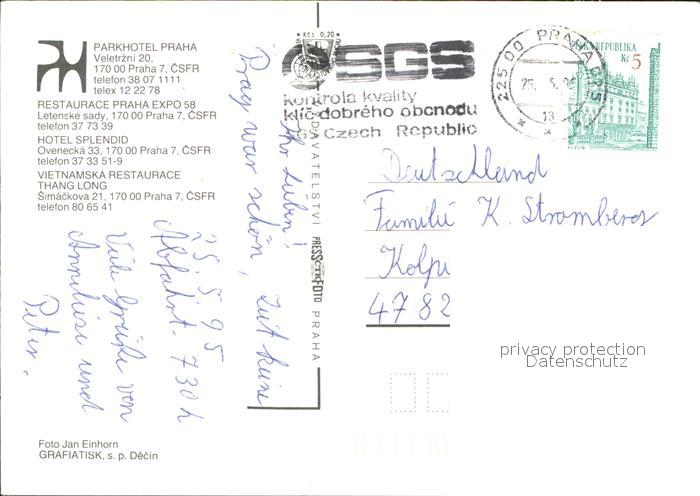 PARKHOTEL PRAHA
Veletržní 20,
170 00 Praha 7, ČSFR
telefon 38 07 1111
telex 12 22 78
RESTAURACE PRAHA EXPO 58
Letenské sady, 170 00 Praha 7, ČSFR
telefon 37 73 39
HOTEL SPLENDID
Ovenecká 33, 170 00 Praha 7, ČSFR
telefon 37 33 51-9
VIETNAMSKÁ RESTAURACE
THANG LONG
Šimáčkova 21, 170 00 Praha 7, ČSFR
telefon 80 65 41
Ihr Lieben!
Prag war schön,
25.5.95
Abfahrt 7 30 h
Viele Grüße von
Anneliese und
Peter.
Kčs 0,20
PRESSFOTO PRAHA
SGS
kontrola kvality
klíč dobrého obchodu
Czech Republic
225 00 PRAHA 025
25. 5.
13
ČESKÁ REPUBLIKA
Kč 5
PLZEŇ
Deutschland
Familie K. Stromberg
Kolpi
4782
privacy protection
Datenschutz
Foto Jan Einhorn
GRAFIATISK, s. p. Děčín